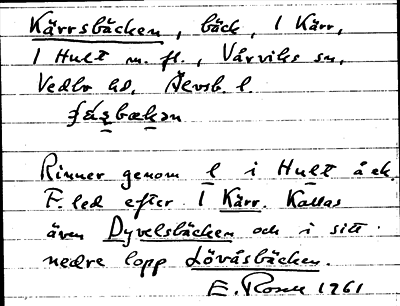 Kärrsbäcken, bäck, 1 Kärr,
1 Hult m. fl., Vårviks sn,
Vedbo hd, Älvsb. l.
Rinner genom l i Hult å ek.
F. led efter 1 Kärr. Kallas
även Dyvelsbäcken och i sitt
nedre lopp Lövåsbäcken.
E. Rosell 1261